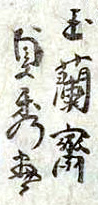 玉蘭齋
貞秀画